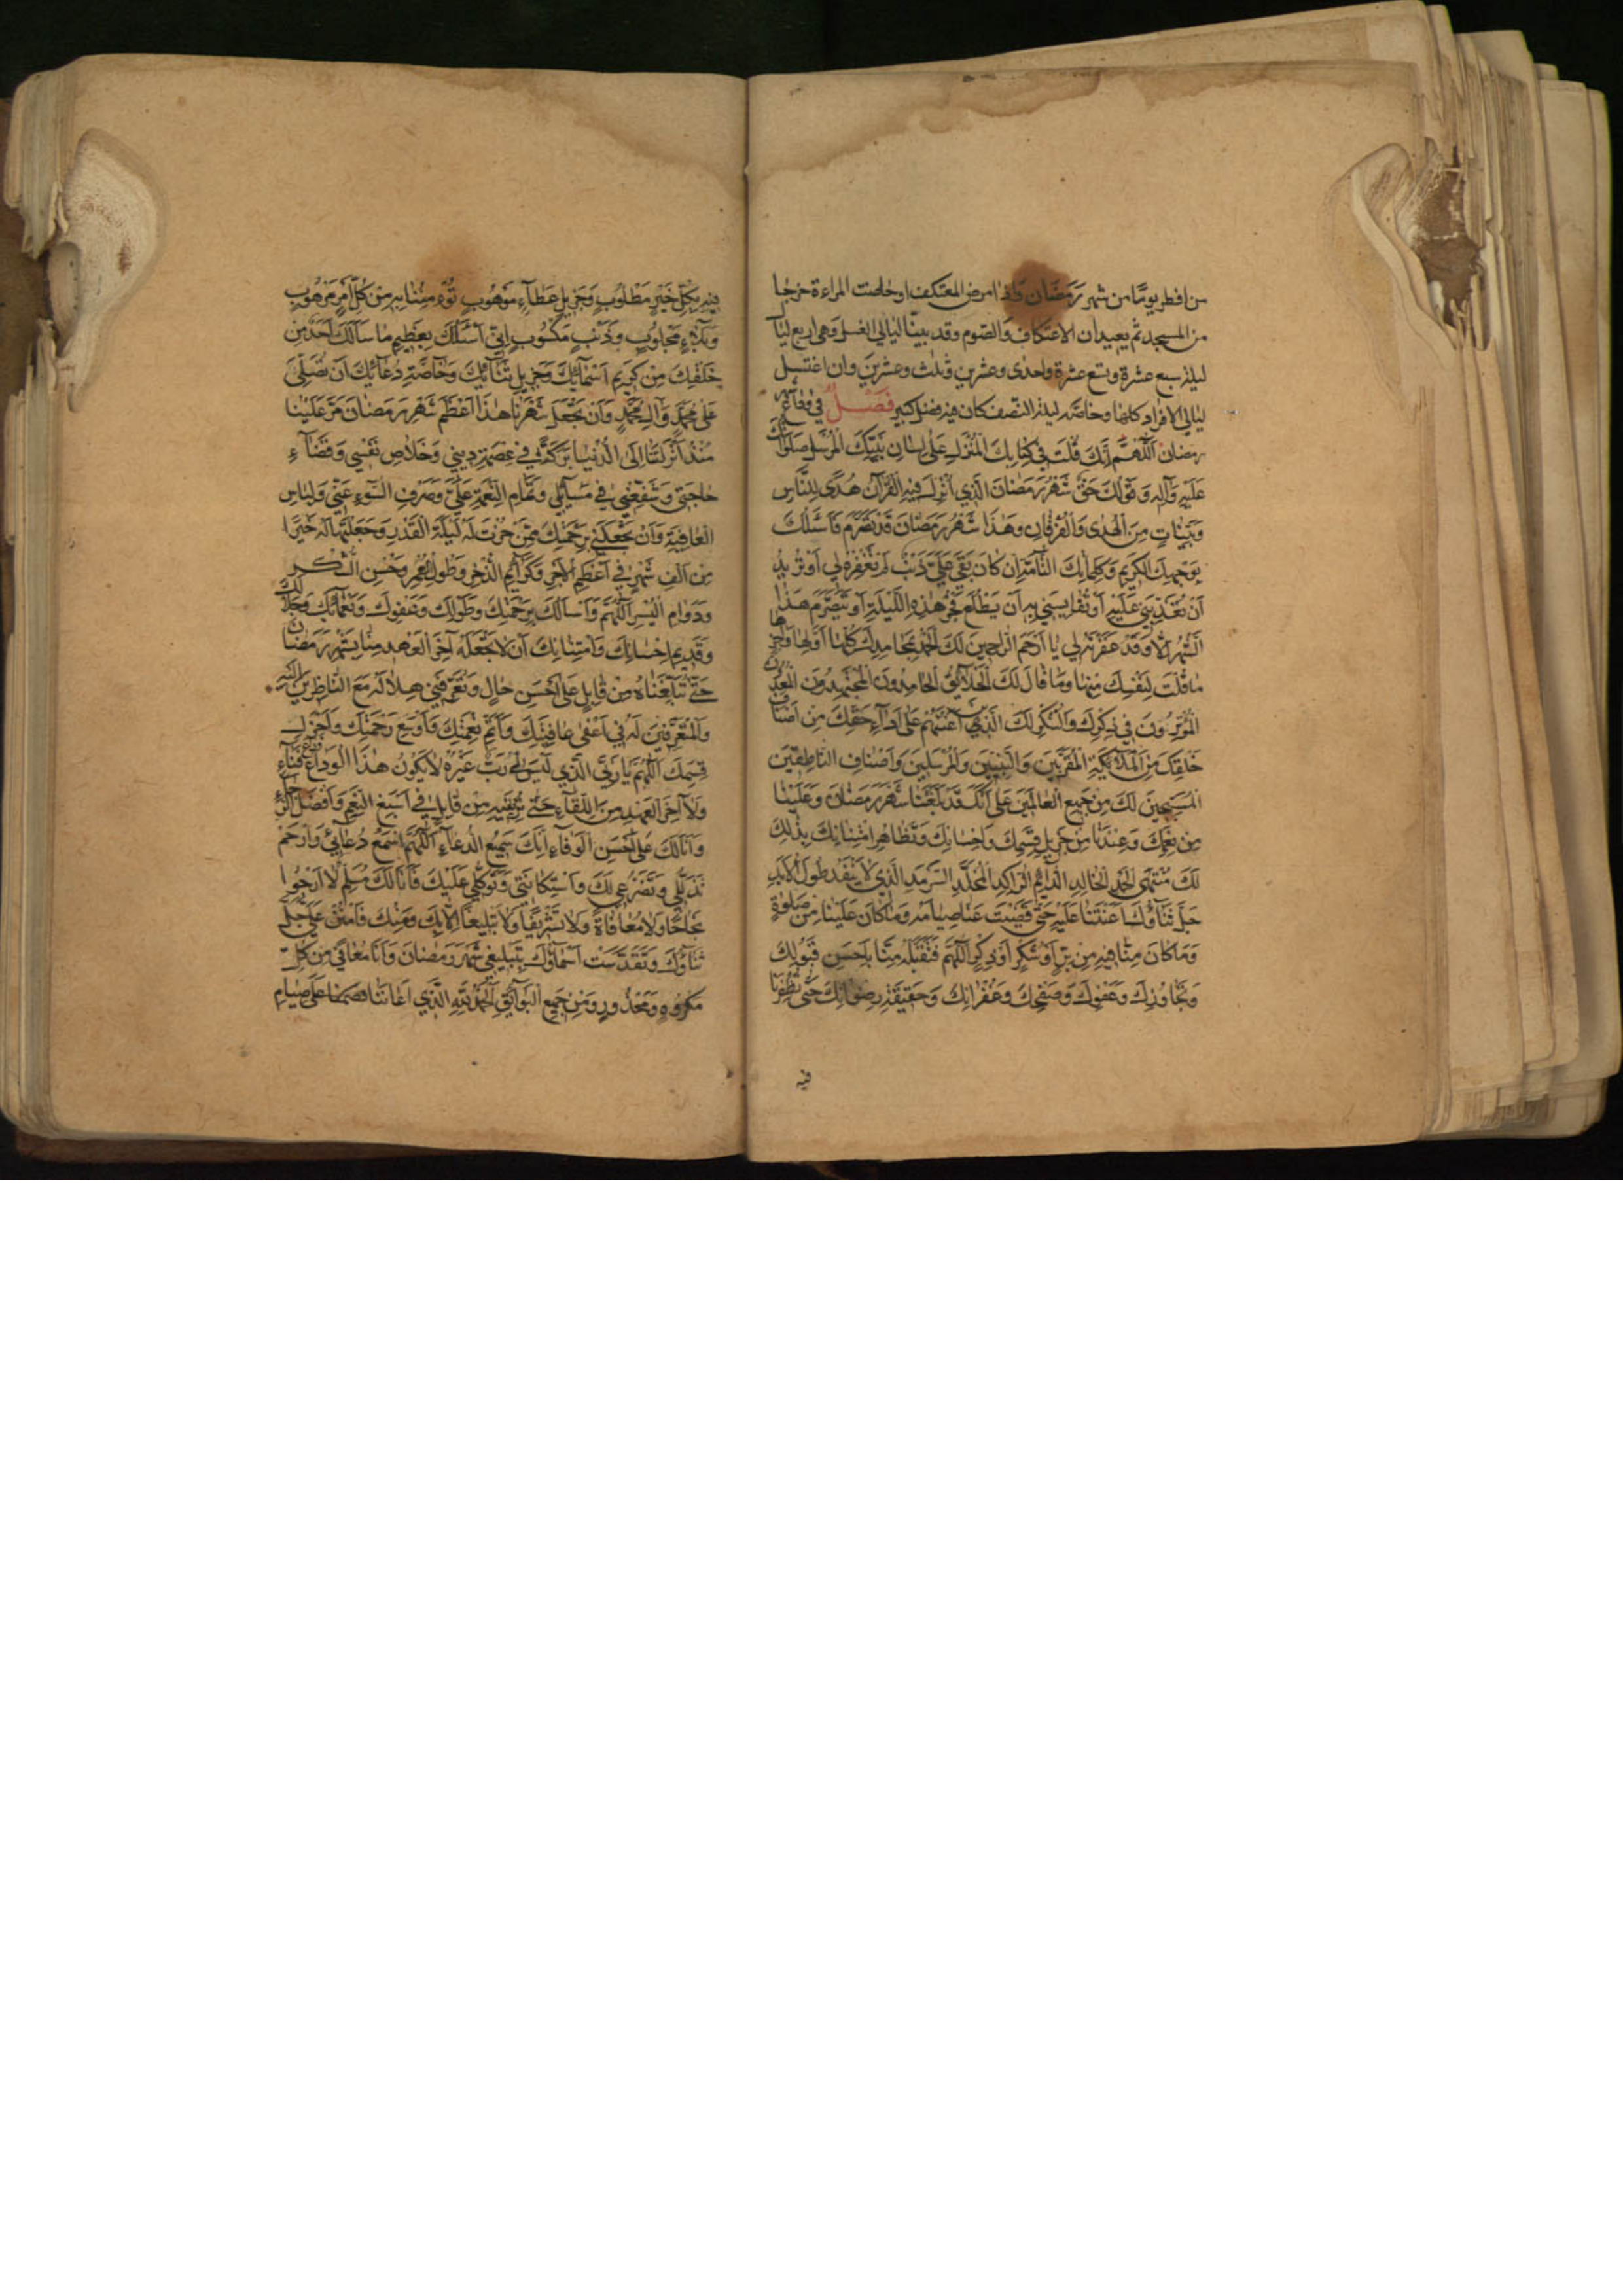 من افطر يومًا من شهر رَمَضَان وَاذا مرض المعتكف او حاضت المراءة خرجا
من المسجد ثم يعيدان الاعتكاف وَالصّوم وقد بيّنّا ليٰالي الغسل وَهى اربع ليٰال
ليلة سبع عشرة وتسع عشرة واحدى وعشرين وثلث وعشرين وان اغتسل
ليٰالي الافراد كلها وخاصّة ليلة النّصف كان فيه فضل كبير فَصْـــلٌ في وداع شهر
رمضان اَللّٰهُمَّ اِنَّكَ قُلْتَ فِي كِتٰابِكَ الْمُنْزَلِ عَلىٰ لِسٰانِ نَبِيِّكَ الْمُرْسَلِ صَلَوٰاتُكَ
عَلَيْهِ وَآلِهِ وَقَوْلُكَ حَقٌّ شَهْرُ رَمَضٰانَ الَّذِي اُنْزِلَ فِيهِ الْقُرْآنُ هُدًى لِلنَّاسِ
وَبَيِّنٰاتٍ مِنَ الْهُدٰى وَالْفُرْقٰانِ وَهٰذَا شَهْرُ رَمَضٰانَ قَدْ تَصَرَّمَ فَاَسْئَلُكَ
بِوَجْهِكَ الْكَرِيمِ وَكَلِمٰاتِكَ التّٰامَّةِ اِنْ كٰانَ بَقِيَ عَلَيَّ ذَنْبٌ لَمْ تَغْفِرْهُ لِي اَوْ تُرِيدُ
اَنْ تُعَذِّبَنِي عَلَيْهِ اَوْ تُقٰايِسَنِي بِهِ اَنْ يَطْلُعَ فَجْرُ هٰذِهِ اللَّيْلَةِ اَوْ يَتَصَرَّمَ هَذَا
الشَّهْرُ اِلّٰا وَقَدْ غَفَرْتَهُ لِي يٰا اَرْحَمَ الرّٰاحِمِينَ لَكَ الْحَمْدُ بِمَحٰامِدِكَ كُلِّهٰا اَوَّلِهٰا وَآخِرِهٰا
مٰا قُلْتَ لِنَفْسِكَ مِنْهٰا وَمٰا قٰالَ لَكَ الْخَلٰائِقُ الْحٰامِدُونَ الْمُجْتَهِدُونَ الْمَعْدُودُونَ
الْمُؤْثِرُونَ فِي ذِكْرِكَ وَالشُّكْرِ لَكَ الَّذِينَ اَعَنْتَهُمْ عَلىٰ اَدٰاءِ حَقِّكَ مِنْ اَصْنٰافِ
خَلْقِكَ مِنَ الْمَلٰائِكَةِ الْمُقَرَّبِينَ وَالنَّبِيِّينَ وَالْمُرْسَلِينَ وَاَصْنٰافِ النّاطِقِينَ
الْمُسَبِّحِينَ لَكَ مِنْ جَمِيعِ الْعٰالَمِينَ عَلىٰ اَنَّكَ قَدْ بَلَّغْتَنٰا شَهْرَ رَمَضٰانَ وَعَلَيْنٰا
مِنْ نِعَمِكَ وَعِنْدَنٰا مِنْ جَزِيلِ قِسَمِكَ وَاِحْسٰانِكَ وَتَظٰاهُرِ امْتِنٰانِكَ بِذٰلِكَ
لَكَ مُنْتَهَى الْحَمْدِ الْخٰالِدِ الدّٰائِمِ الرّٰاكِدِ الْمُخَلَّدِ السَّرْمَدِ الَّذِي لٰا يَنْفَدُ طُولَ الْاَبَدِ
جَلَّ ثَنٰاؤُكَ اَعَنْتَنٰا عَلَيْهِ حَتّٰى قَضَيْتَ عَنّٰا صِيٰامَهُ وَمٰا كٰانَ عَلَيْنٰا مِنْ صَلٰوةٍ
وَمٰا كٰانَ مِنّٰا فِيهِ مِنْ بِرٍّ اَوْ شُكْرٍ اَوْ ذِكْرٍ اَللّٰهُمَّ فَتَقَبَّلْهُ مِنّٰا بِاَحْسَنِ قَبُولِكَ
وَتَجٰاوُزِكَ وَعَفْوِكَ وَصَفْحِكَ وَغُفْرٰانِكَ وَحَقِيقَةِ رِضْوٰانِكَ حَتّٰى تُظْفِرَنٰا
فيه
فِيهِ بِكُلِّ خَيْرٍ مَطْلُوبٍ وَجَزِيلِ عَطٰاءٍ مَوْهُوبٍ تُؤْمِنُنٰا بِهِ مِنْ كُلِّ اَمْرٍ مَرْهُوبٍ
وَبَلٰاءٍ مَجْلُوبٍ وَذَنْبٍ مَكْسُوبٍ اِنِّي اَسْئَلُكَ بِعَظِيمِ مٰا سَاَلَكَ اَحَدٌ مِنْ
خَلْقِكَ مِنْ كَرِيمِ اَسْمٰائِكَ وَجَزِيلِ ثَنٰائِكَ وَخٰاصَّةِ دُعٰائِكَ اَنْ تُصَلِّيَ
عَلىٰ مُحَمَّدٍ وَآلِ مُحَمَّدٍ وَاَنْ تَجْعَلَ شَهْرَنٰا هٰذَا اَعْظَمَ شَهْرِ رَمَضٰانَ مَرَّ عَلَيْنٰا
مُنْذُ اَنْزَلْتَنٰا اِلَى الدُّنْيٰا بَرَكَةً فِي عِصْمَةِ دِينِي وَخَلٰاصِ نَفْسِي وَقَضٰاءِ
حٰاجَتِي وَشَفِّعْنِي فِي مَسٰائِلِي وَتَمٰامِ النِّعْمَةِ عَلَيَّ وَصَرْفِ السُّوءِ عَنِّي وَلِبٰاسِ
الْعٰافِيَةِ وَاَنْ تَجْعَلَنِي بِرَحْمَتِكَ مِمَّنْ حُزْتَ لَهُ لَيْلَةَ الْقَدْرِ وَجَعَلْتَهٰا لَهُ خَيْرًا
مِنْ اَلْفِ شَهْرٍ فِي اَعْظَمِ الْاَجْرِ وَكَرٰائِمِ الذُّخْرِ وَطُولِ الْعُمْرِ وَحُسْنِ الشُّكْرِ
وَدَوٰامِ الْيُسْرِ اَللّٰهُمَّ وَاَسْاَلُكَ بِرَحْمَتِكَ وَطَوْلِكَ وَعَفْوِكَ وَنَعْمٰائِكَ وَجَلٰالِكَ
وَقَدِيمِ اِحْسٰانِكَ وَامْتِنٰانِكَ اَنْ لٰا تَجْعَلَهُ آخِرَ الْعَهْدِ مِنّٰا بِشَهْرِ رَمَضٰانَ
حَتّٰى تُبَلِّغَنٰاهُ مِنْ قٰابِلٍ عَلىٰ اَحْسَنِ حٰالٍ وَتُعَرِّفَنِي هِلٰالَهُ مَعَ النّٰاظِرِينَ اِلَيْهِ
وَالْمُتَعَرِّفِينَ لَهُ فِي اَعْفىٰ عٰافِيَتِكَ وَاَتَمِّ نِعْمَتِكَ وَاَوْسَعِ رَحْمَتِكَ وَاَجْزَلِ
قِسَمِكَ اَللّٰهُمَّ يٰا رَبِّيَ الَّذِي لَيْسَ لِي رَبٌّ غَيْرُهُ لٰا يَكُونُ هٰذَا الْوَدٰاعُ وَدٰاعَ فَنٰاءٍ
وَلٰا آخِرَ الْعَهْدِ مِنَ اللِّقٰاءِ حَتّٰى تُرِيَنِيهِ مِنْ قٰابِلٍ فِي اَسْبَغِ النِّعَمِ وَاَفْضَلِ الرَّجٰاءِ
وَاَنَا لَكَ عَلىٰ اَحْسَنِ الْوَفٰاءِ اِنَّكَ سَمِيعُ الدُّعٰاءِ اَللّٰهُمَّ اسْمَعْ دُعٰائِي وَارْحَمْ
تَذَلُّلِي وَتَضَرُّعِي لَكَ وَاسْتِكٰانَتِي وَتَوَكُّلِي عَلَيْكَ فَاَنَا لَكَ مُسَلِّمٌ لٰا اَرْجُوا
نَجٰاحًا وَلٰا مُعٰافٰاةً وَلٰا تَشْرِيفًا وَلٰا تَبْلِيغًا اِلّٰا بِكَ وَمِنْكَ فَامْنُنْ عَلَيَّ جَلَّ
ثَنٰاؤُكَ وَتَقَدَّسَتْ اَسْمٰاؤُكَ بِتَبْلِيغِي شَهْرَ رَمَضٰانَ وَاَنَا مُعٰافًى مِنْ كُلِّ
مَكْرُوهٍ وَمَحْذُورٍ وَمِنْ جَمِيعِ الْبَوٰائِقِ اَلْحَمْدُ لِلّٰهِ الَّذِي اَعٰانَنٰا عَلىٰ صِيٰامِ